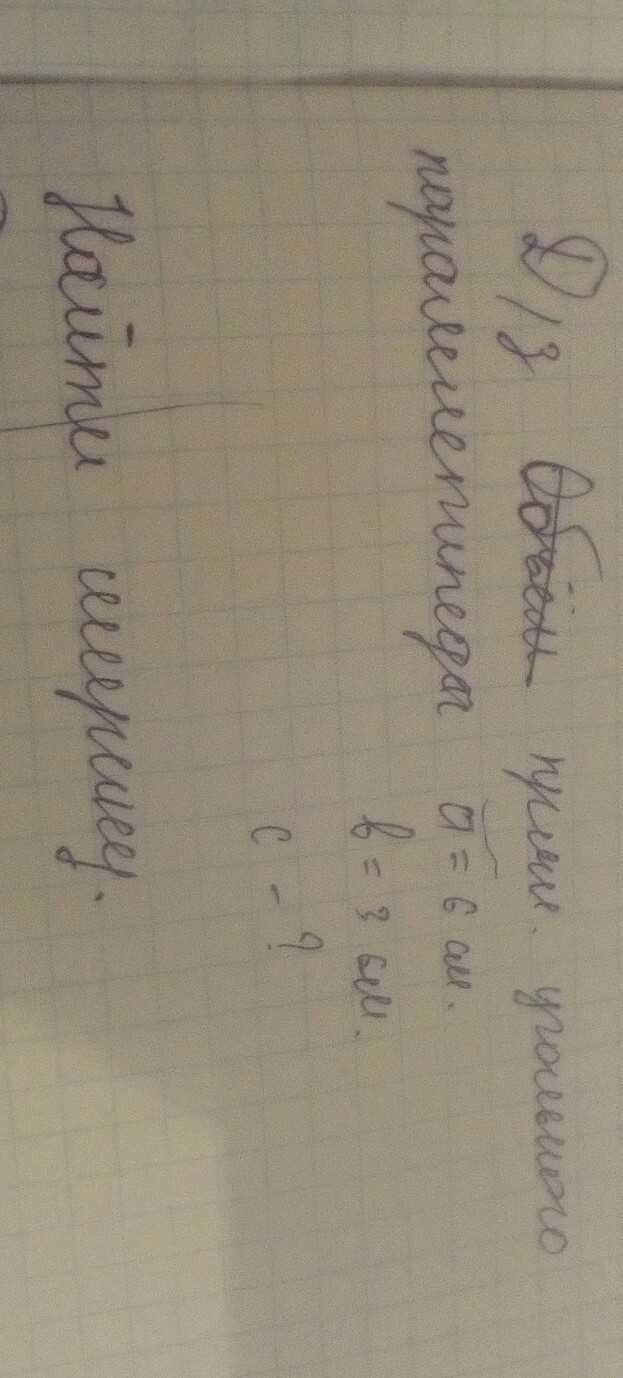 Д/з Объём прям. угольного
параллелепипеда a = 6 см.
в = 3 см.
с - ?
Найти ширину.